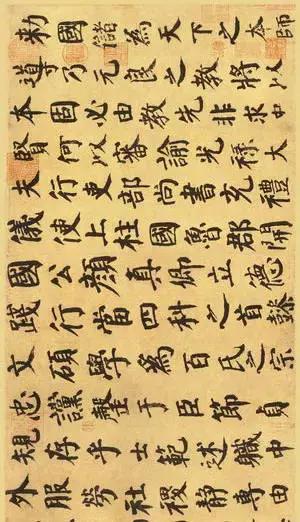 勅國儲為天下之本師
導乃元良之教將以
本固必由教先非求中
賢何以審諭光祿大
夫行吏部尚書充禮
儀使上柱國魯郡開
國公顏真卿立德
踐行當四科之首懿
文碩學為百氏之宗
忠讜罄于臣節貞
規存乎士範述職中
外服勞社稷靜專由